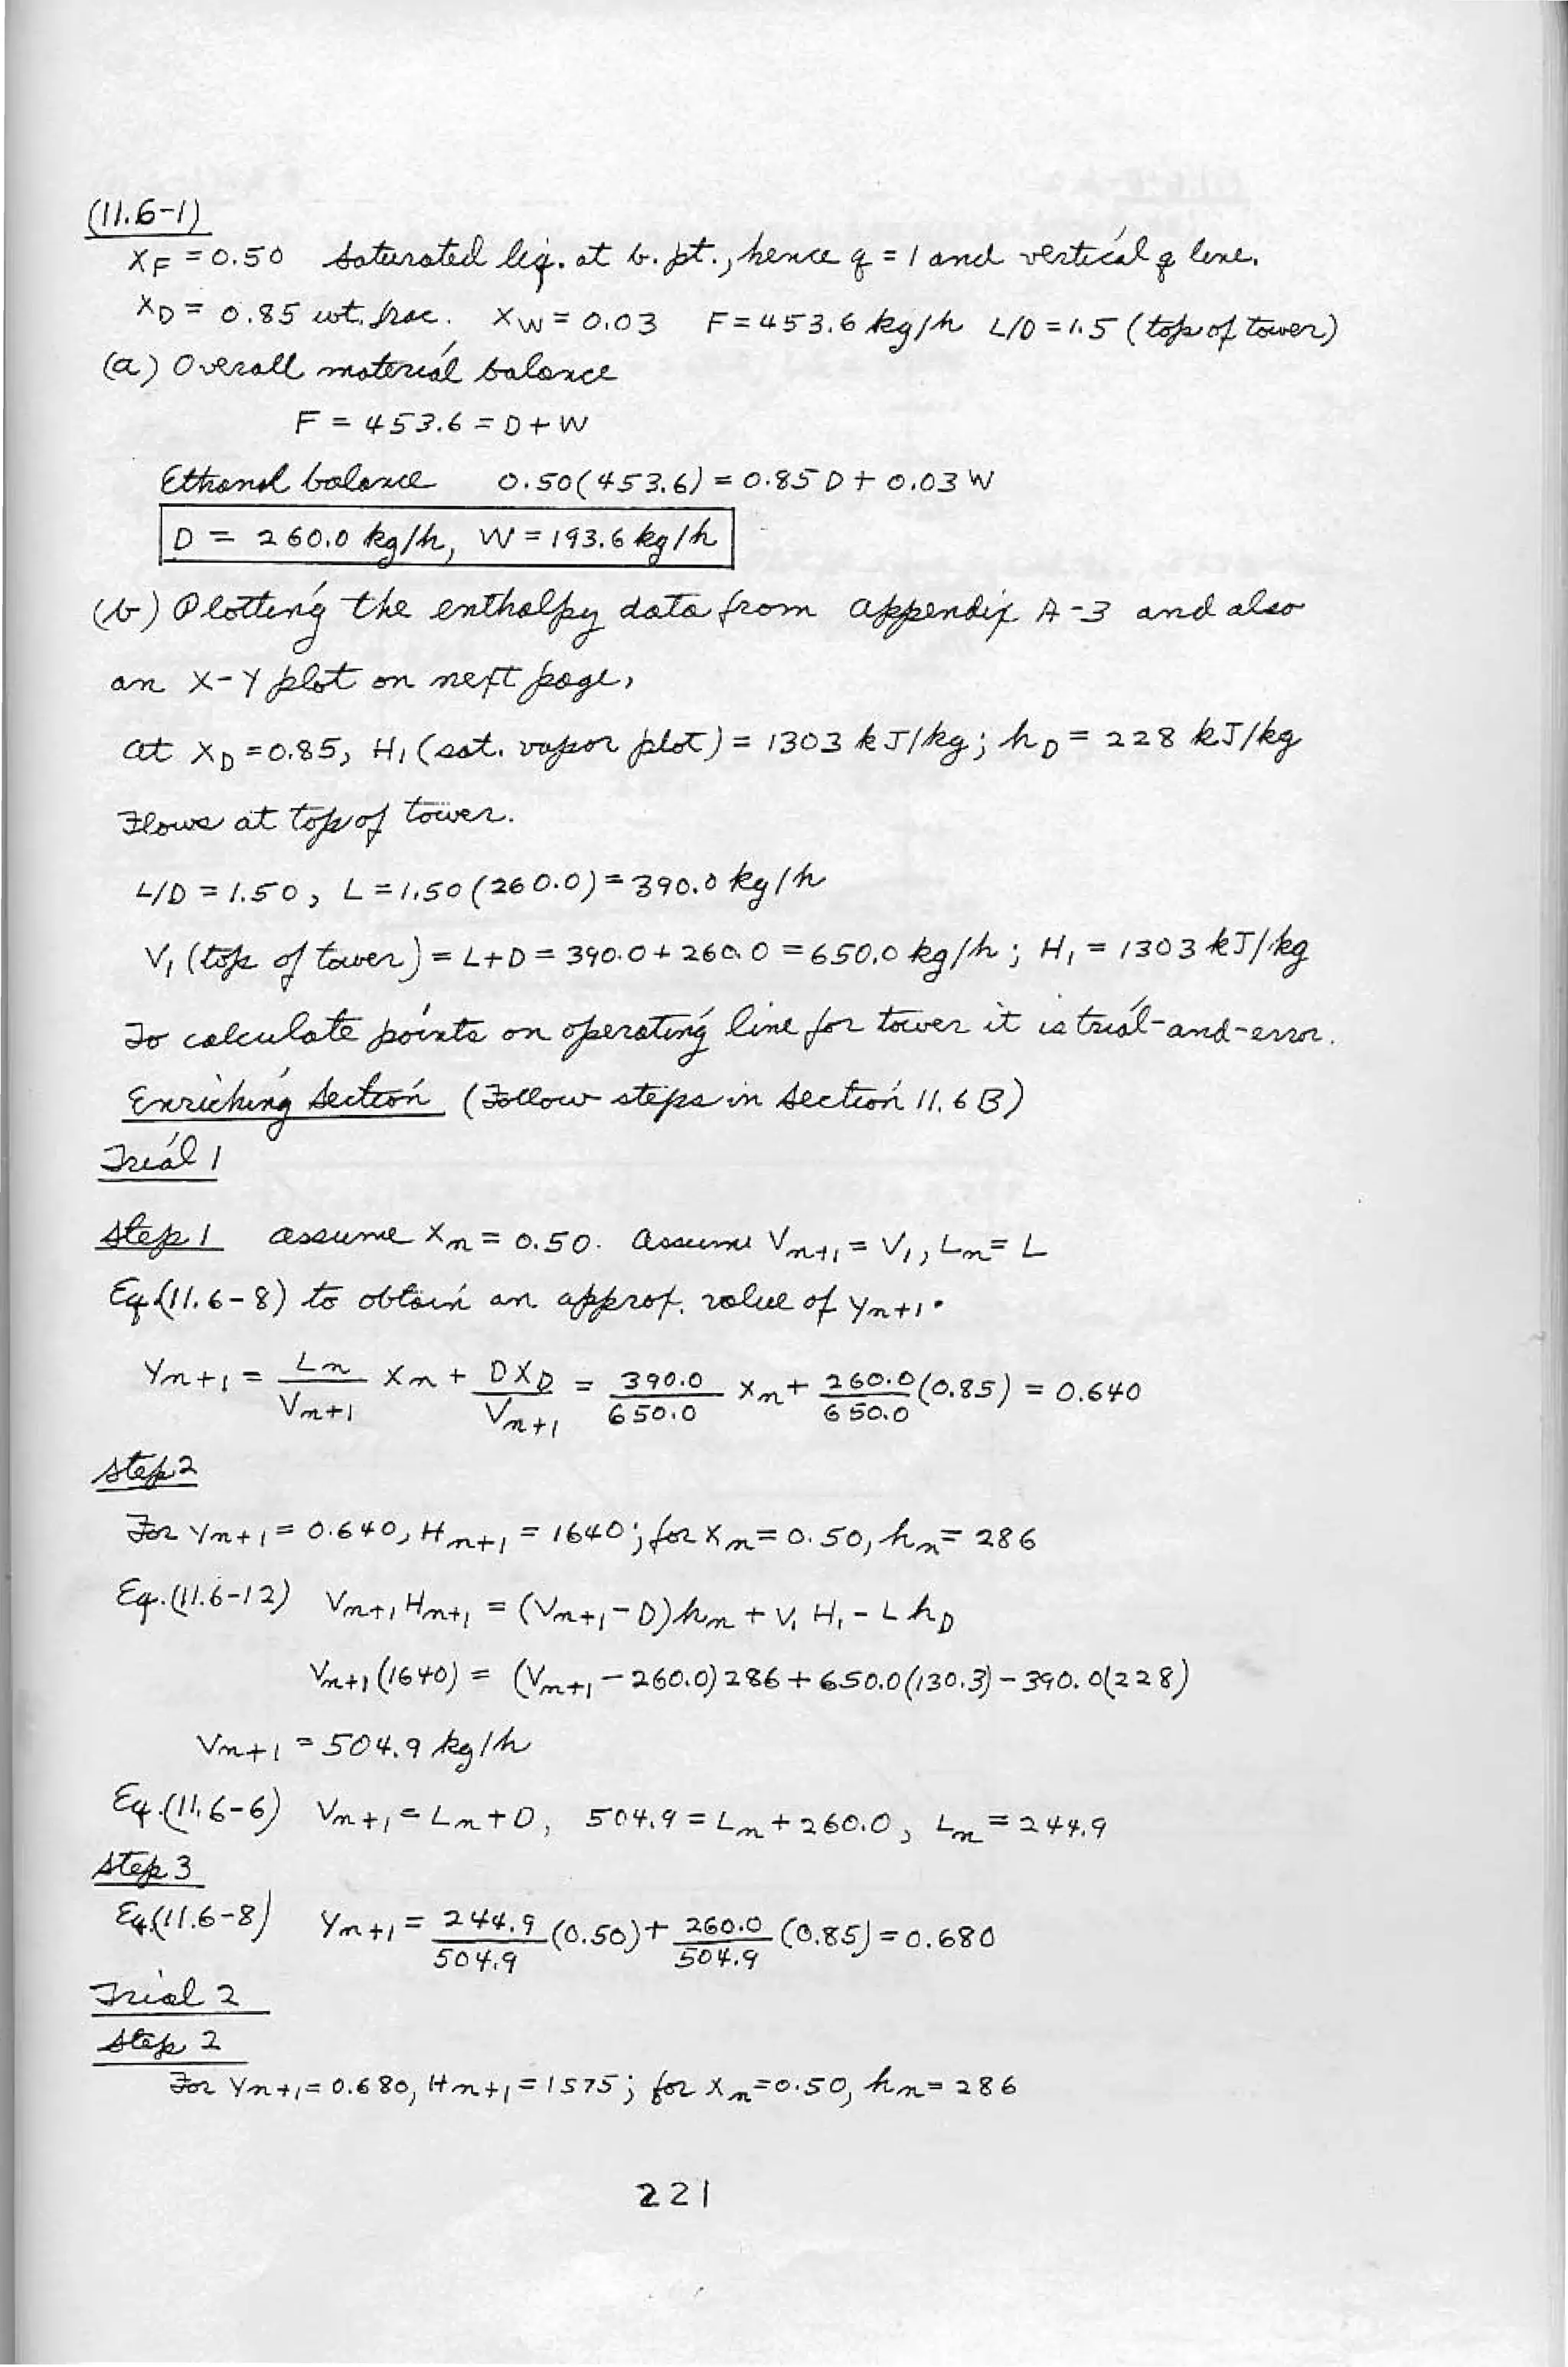 (11.6-1)
X_F = 0.50 Saturated liq. at b. pt., hence q = 1 and vertical q line.
X_D = 0.85 wt. frac. X_W = 0.03 F = 453.6 kg/h L/D = 1.5 (top of tower)
(a) Overall material balance
F = 453.6 = D + W
Ethanol balance 0.50(453.6) = 0.85 D + 0.03 W
D = 260.0 kg/h, W = 193.6 kg/h
(b) Plotting the enthalpy data from Appendix A-3 and also
an X-Y plot on next page,
at X_D = 0.85, H_1 (sat. vapor plot) = 1303 kJ/kg; h_D = 228 kJ/kg
Flows at top of tower.
L/D = 1.50, L = 1.50 (260.0) = 390.0 kg/h
V_1 (top of tower) = L + D = 390.0 + 260.0 = 650.0 kg/h; H_1 = 1303 kJ/kg
To calculate points on operating line for tower it is trial-and-error.
Enriching Section (Follow steps in Section 11.6B)
Trial 1
Step 1 Assume X_n = 0.50. Assume V_n+1 = V_1, L_n = L
Eq. (11.6-8) to obtain an approx. value of y_n+1.
y_n+1 = L_n/V_n+1 X_n + D X_D/V_n+1 = 390.0/650.0 X_n + 260.0/650.0 (0.85) = 0.640
Step 2
For y_n+1 = 0.640, H_n+1 = 1640; for X_n = 0.50, h_n = 286
Eq. (11.6-12) V_n+1 H_n+1 = (V_n+1 - D) h_n + V_1 H_1 - L h_D
V_n+1 (1640) = (V_n+1 - 260.0) 286 + 650.0 (130.3) - 390.0(228)
V_n+1 = 504.9 kg/h
Eq. (11.6-6) V_n+1 = L_n + D, 504.9 = L_n + 260.0, L_n = 244.9
Step 3
Eq. (11.6-8) y_n+1 = 244.9/504.9 (0.50) + 260.0/504.9 (0.85) = 0.680
Trial 2
Step 2
For y_n+1 = 0.680, H_n+1 = 1575; for X_n = 0.50, h_n = 286
221